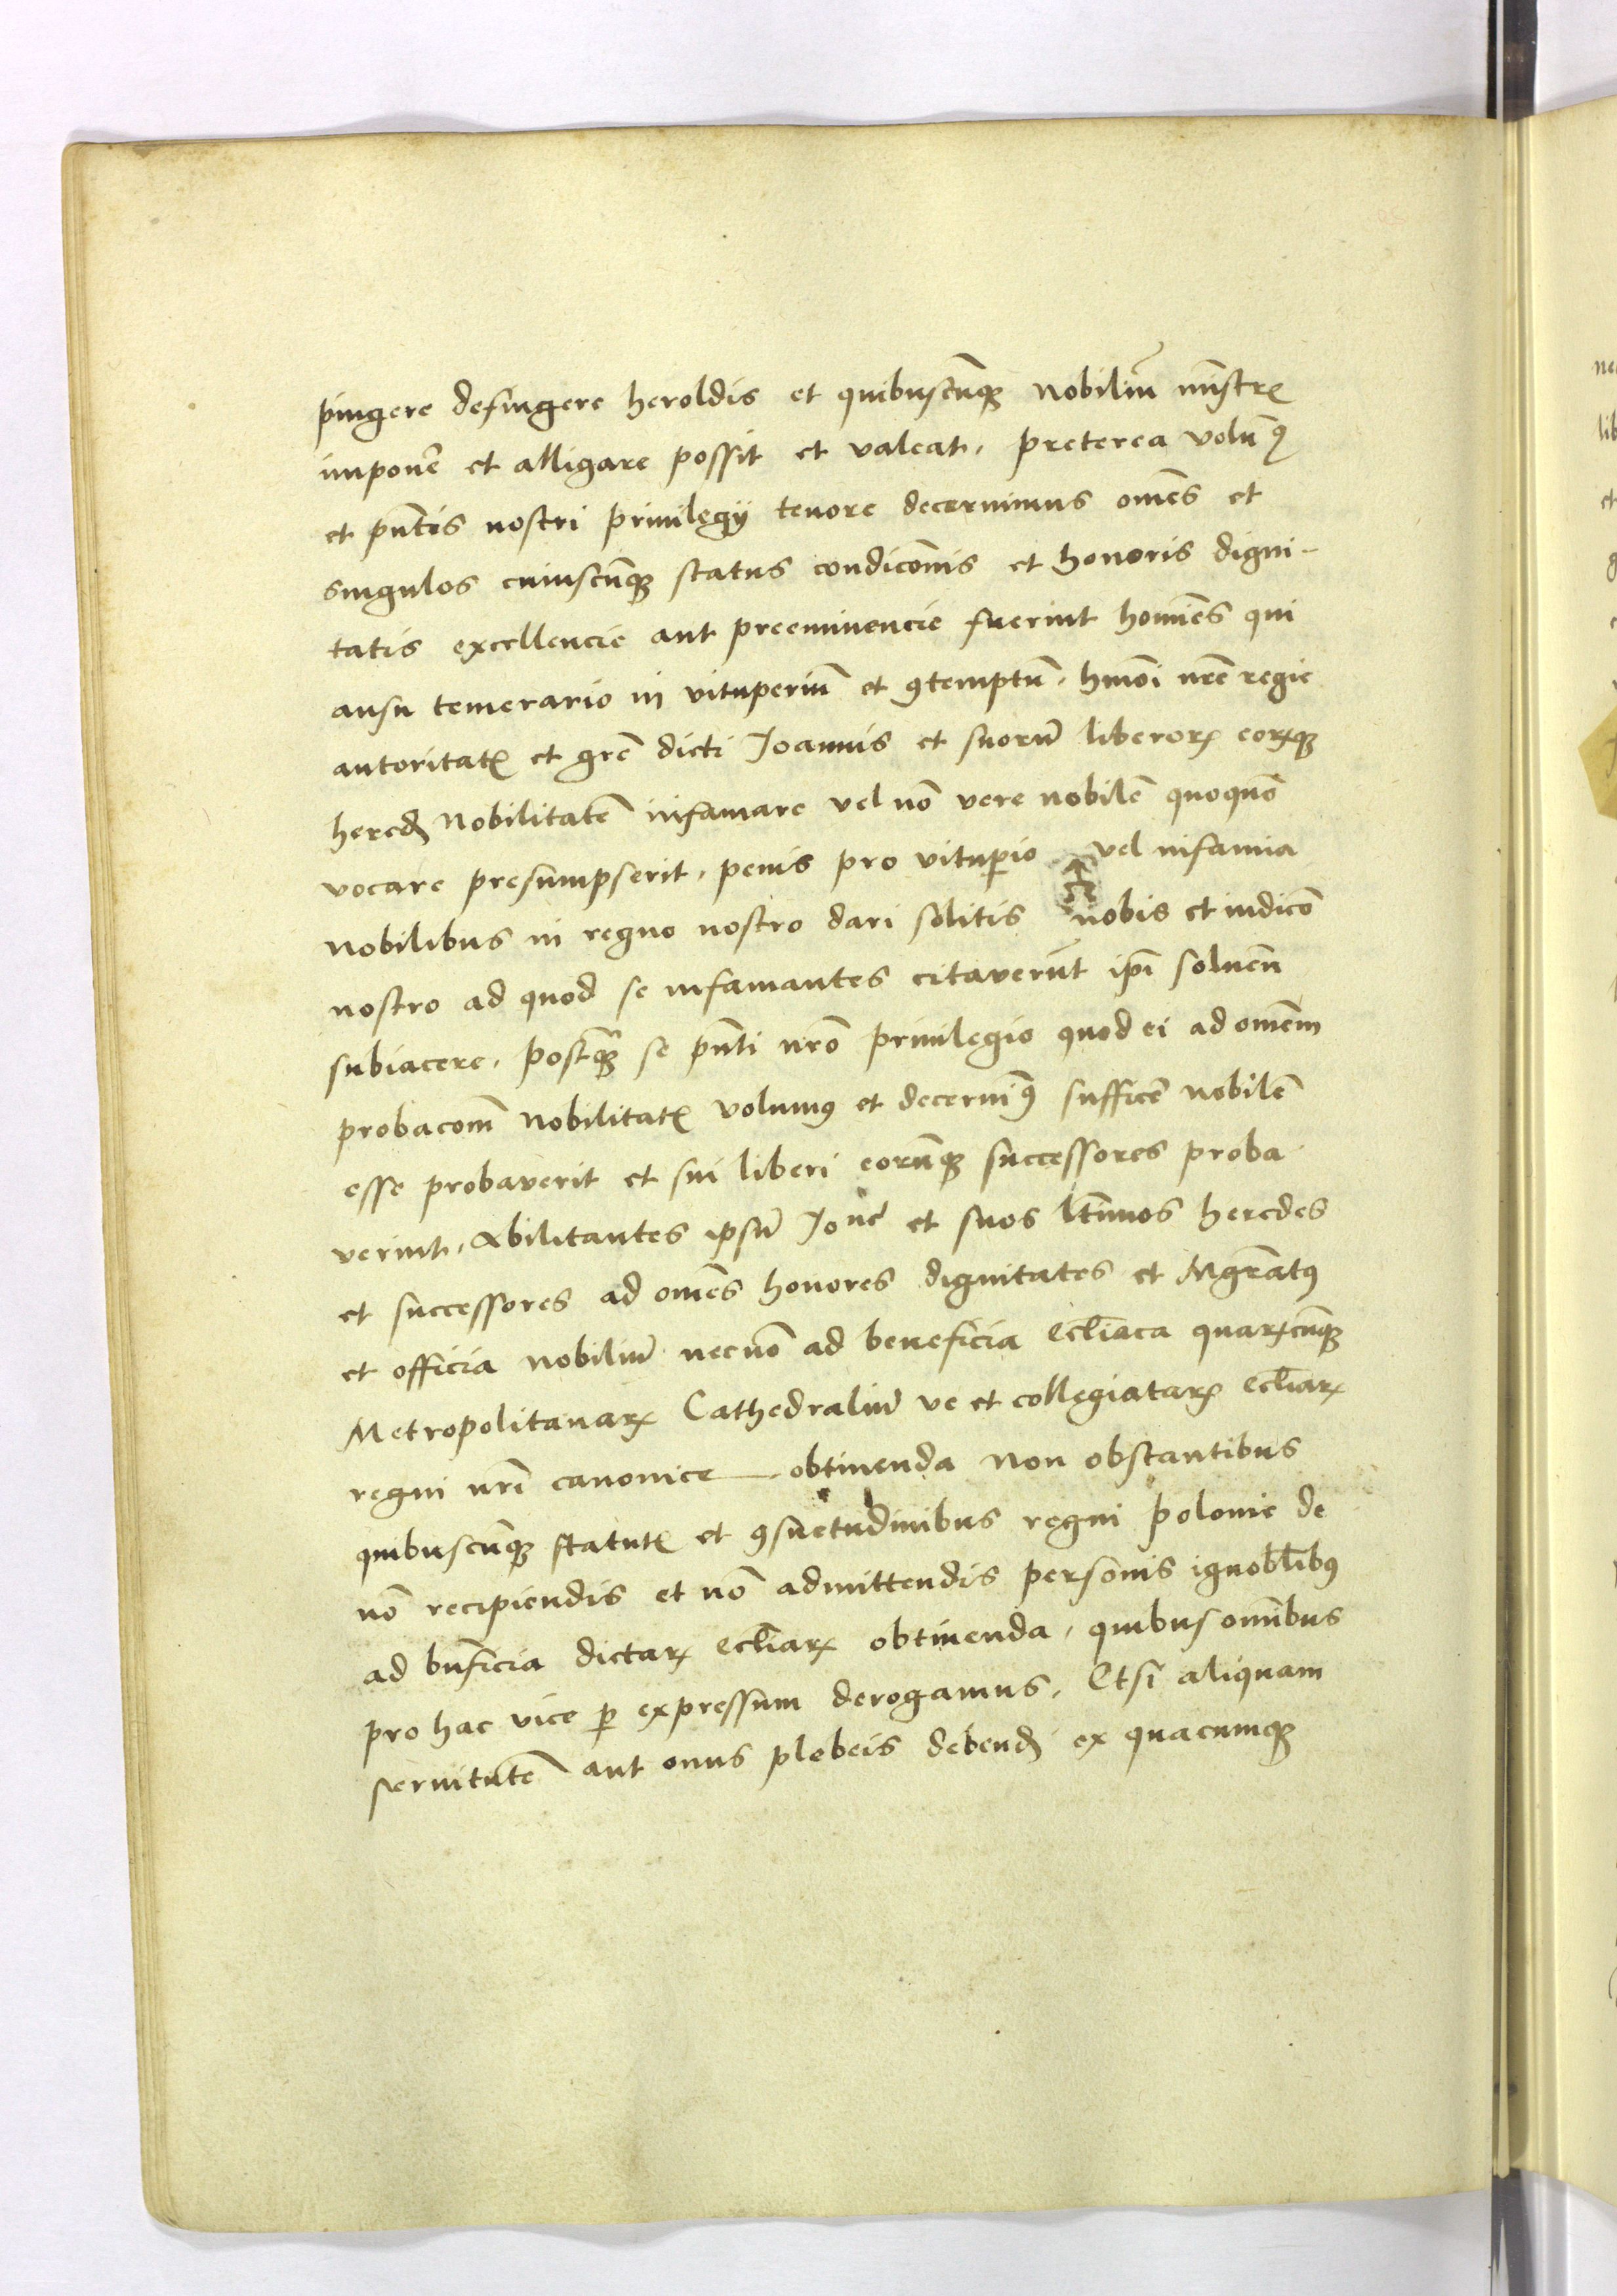 pingere defingere heroldis et quibuscũqꝫ nobiliũ mĩstrꝭ
imponẽ et alligare possit et valeat, preterea volũꝰ
et pñtis nostri priuilegÿ tenore decernimus om̃es et
singulos cuiuscũqꝫ status condicõnis et honoris digni-
tatis excellencie aut preeminencie fuerint homĩes qui
ausu temerario in vituperiũ et ꝯtemptũ, hmõi nr̃e regie
autoritatꝭ et gr̃e dicti Joannis et suorũ liberoꝝ eoꝝqꝫ
hered̛ nobilitatẽ infamare vel nõ vere nobilẽ quoquõ
vocare presumpserit, penis pro vituꝑio vel infamia
nobilibus in regno nostro dari solitis nobis et iudicõ
nostro ad quod se infamantes citaverũt ipĩ soluẽn
subiacere, postqꝫ̃ se pñti nr̃o priuilegio quod ei ad om̃em
probacom̃ nobilitatꝭ volumꝰ et decernimꝰ sufficẽ nobilẽ
esse probaverit et sui liberi eorũqꝫ successores proba
verint, Abilitantes ipsũ Joñe et suos ltĩmos heredes
et successores ad om̃es honores dignitates et Mgr̃atꝰ
et officia nobiliũ necnõ ad beneficia ecl̃iaca quaꝝcũqꝫ
Metropolitanaꝝ Cathedraliũ ve et collegiataꝝ ecl̃iaꝝ
regni nr̃i canonice — obtinenda non obstantibus
quibuscũqꝫ statutꝭ et ꝯsuetudinibus regni polonie de
nõ recipiendis et nõ admittendis personis ignobl̃ibꝰ
ad bñficia dictaꝝ ecl̃iaꝝ obtinenda, quibus omĩbus
pro hac vice ꝑ expressum derogamus, Etsi aliquam
seruitutẽ aut onus plebeis debend̛ ex quacumqꝫ